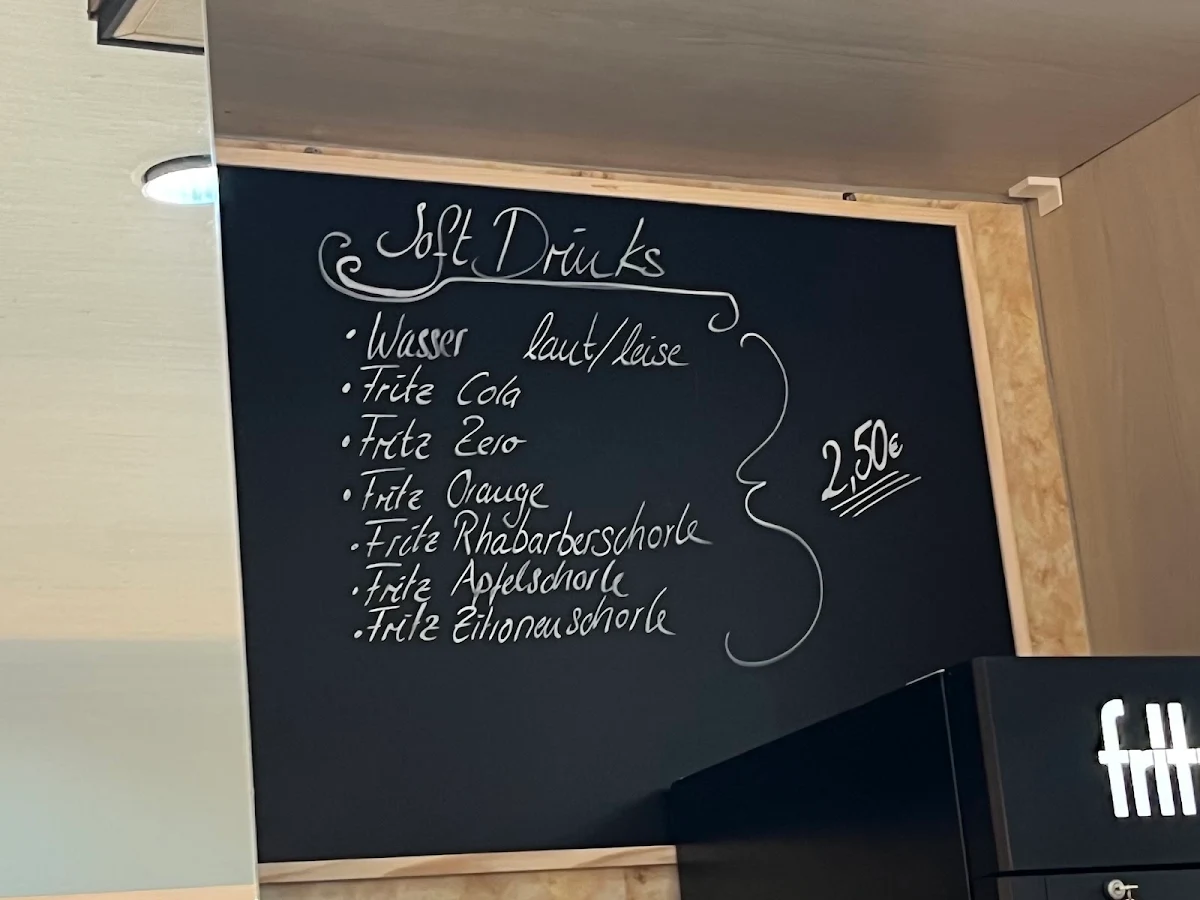 Soft Drinks
• Wasser laut/leise
• Fritz Cola
• Fritz Zero
• Fritz Orange
• Fritz Rhabarberschorle
• Fritz Apfelschorle
• Fritz Zitronenschorle
2,50€
frit